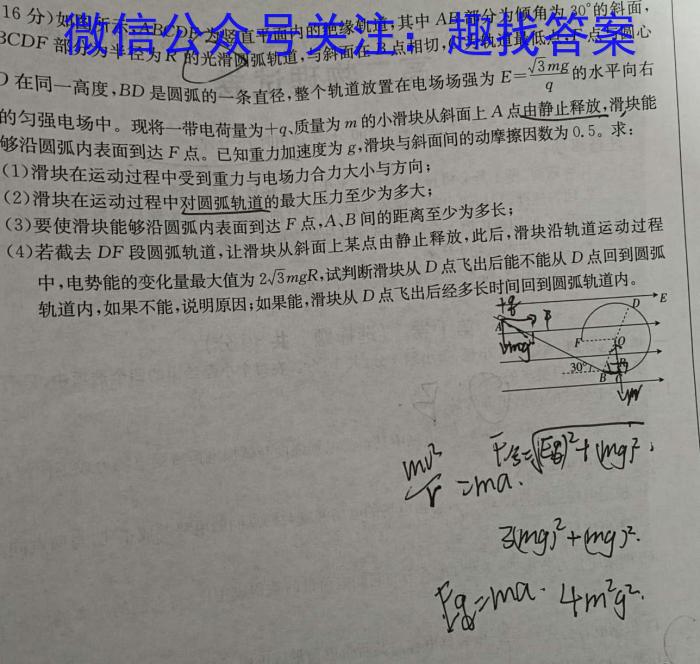 16分)如图所示,ABCDF为竖直平面内的绝缘轨道,其中AB部分为倾角为30°的斜面,
微信公众号关注:趣找答案
BCDF部分为半径为R的光滑圆弧轨道,与斜面在B点相切,
D在同一高度,BD是圆弧的一条直径,整个轨道放置在电场场强为E=√3mg/q的水平向右
的匀强电场中。现将一带电荷量为+q、质量为m的小滑块从斜面上A点由静止释放,滑块能
够沿圆弧内表面到达F点。已知重力加速度为g,滑块与斜面间的动摩擦因数为0.5。求:
(1)滑块在运动过程中受到重力与电场力合力大小与方向;
(2)滑块在运动过程中对圆弧轨道的最大压力至少为多大;
(3)要使滑块能够沿圆弧内表面到达F点,A、B间的距离至少为多长;
(4)若截去DF段圆弧轨道,让滑块从斜面上某点由静止释放,此后,滑块沿轨道运动过程
中,电势能的变化量最大值为2√3mgR,试判断滑块从D点飞出后能不能从D点回到圆弧
轨道内,如果不能,说明原因;如果能,滑块从D点飞出后经多长时间回到圆弧轨道内。
+q
D
E
A
F
mg
F
O
30°
B
mv²/r =ma.
F合=√(Eq)²+(mg)²
3(mg)²+(mg)².
Eq=ma. 4m²g².